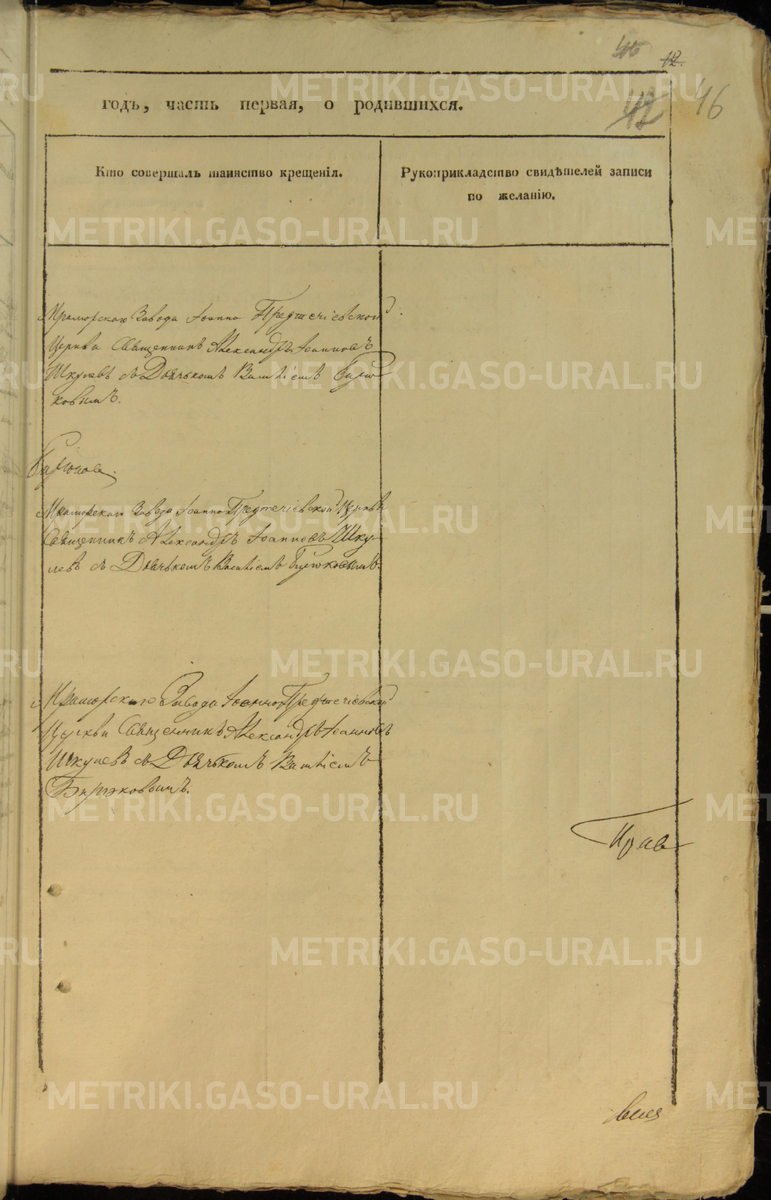 46 12.
42 46
годъ, часть первая, о родившихся.
Кто совершалъ таинство крещенія.
Рукоприкладство свидѣтелей записи
по желанію.
Мраморскаго Завода Іоанно Предтечіевской
Церкви Священникъ Александръ Іоанновъ
Шкулевъ съ Дьячькомъ Василіемъ Бирю
ковымъ.
Мраморскаго Завода Іоанно Предтечіевской Церкви
Священникъ Александръ Іоанновъ Шку
левъ съ Дьячькомъ Василіемъ Бирюковымъ.
Мраморскаго Завода Іоанно Предтечіевской
Церкви Священникъ Александръ Іоанновъ
Шкулевъ съ Дьячькомъ Василіемъ
Бирюковымъ.
METRIKI.GASO-URAL.RU